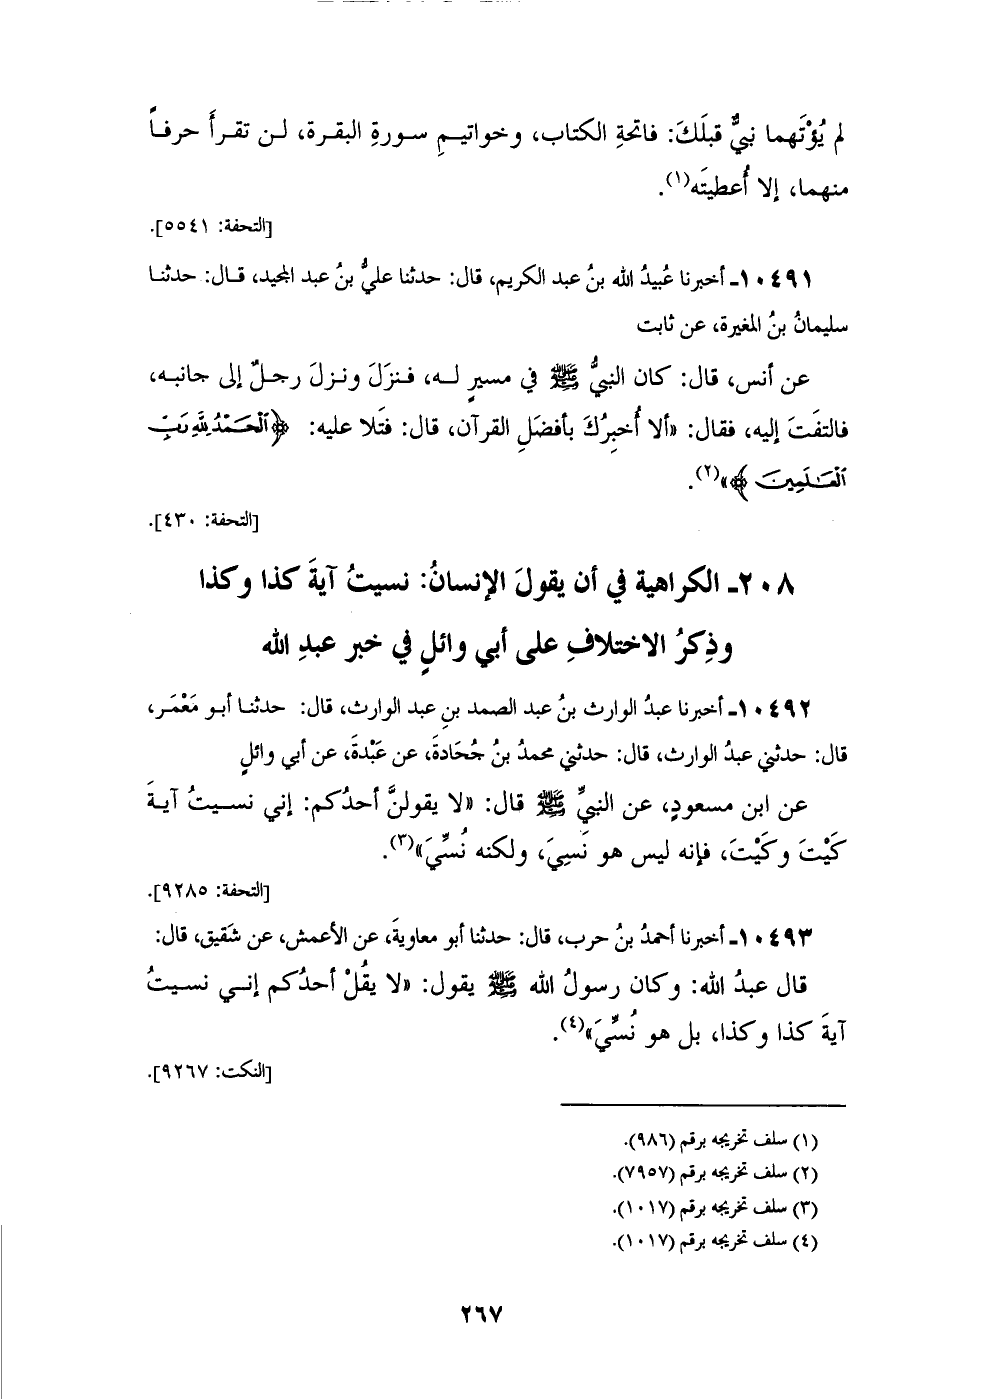 لم يُؤْتَهما نبيٌّ قبلَكَ: فاتحةِ الكتاب، وخواتيمِ سورةِ البقرة، لن تقرأَ حرفاً
منهما، إلا أُعطيتَه(١).
[التحفة: ٥٥٤١].
١٠٤٩١ـ أخبرنا عُبيدُ الله بنُ عبد الكريم، قال: حدثنا عليُّ بنُ عبد المجيد، قال: حدثنا
سليمانُ بنُ المغيرة، عن ثابت
عن أنس، قال: كان النبيُّ ﷺ في مسيرٍ له، فنزَلَ ونزلَ رجلٌ إلى جانبه،
فالتفَتَ إليه، فقال: «ألا أُخبِرُكَ بأفضَلِ القرآن، قال: فَتَلا عليه: ﴿ٱلۡحَمۡدُ لِلَّهِ رَبِّ
ٱلۡعَٰلَمِينَ﴾»(٢).
[التحفة: ٤٣٠].
٢٠٨ـ الكراهية في أن يقولَ الإنسانُ: نسيتُ آيةَ كذا وكذا
وذِكرُ الاختلافِ على أبي وائلٍ في خبر عبدِ الله
١٠٤٩٢ـ أخبرنا عبدُ الوارث بنُ عبد الصمد بنِ عبد الوارث، قال: حدثنا أبو مَعْمَر،
قال: حدثني عبدُ الوارث، قال: حدثني محمدُ بنُ جُحَادةَ، عن عَبْدةَ، عن أبي وائلٍ
عن ابن مسعودٍ، عن النبيِّ ﷺ قال: «لا يقولنَّ أحدُكم: إني نسيتُ آيةَ
كَيْتَ وكَيْتَ، فإنه ليس هو نَسِيَ، ولكنه نُسِّيَ»(٣).
[التحفة: ٩٢٨٥].
١٠٤٩٣ـ أخبرنا أحمدُ بنُ حرب، قال: حدثنا أبو معاويةَ، عن الأعمش، عن شَقيق، قال:
قال عبدُ الله: وكان رسولُ الله ﷺ يقول: «لا يقُلْ أحدُكم إنـي نسيتُ
آيةَ كذا وكذا، بل هو نُسِّيَ»(٤).
[النكت: ٩٢٦٧].
(١) سلف تخريجه برقم (٩٨٦).
(٢) سلف تخريجه برقم (٧٩٥٧).
(٣) سلف تخريجه برقم (١٠١٧).
(٤) سلف تخريجه برقم (١٠١٧).
٢٦٧